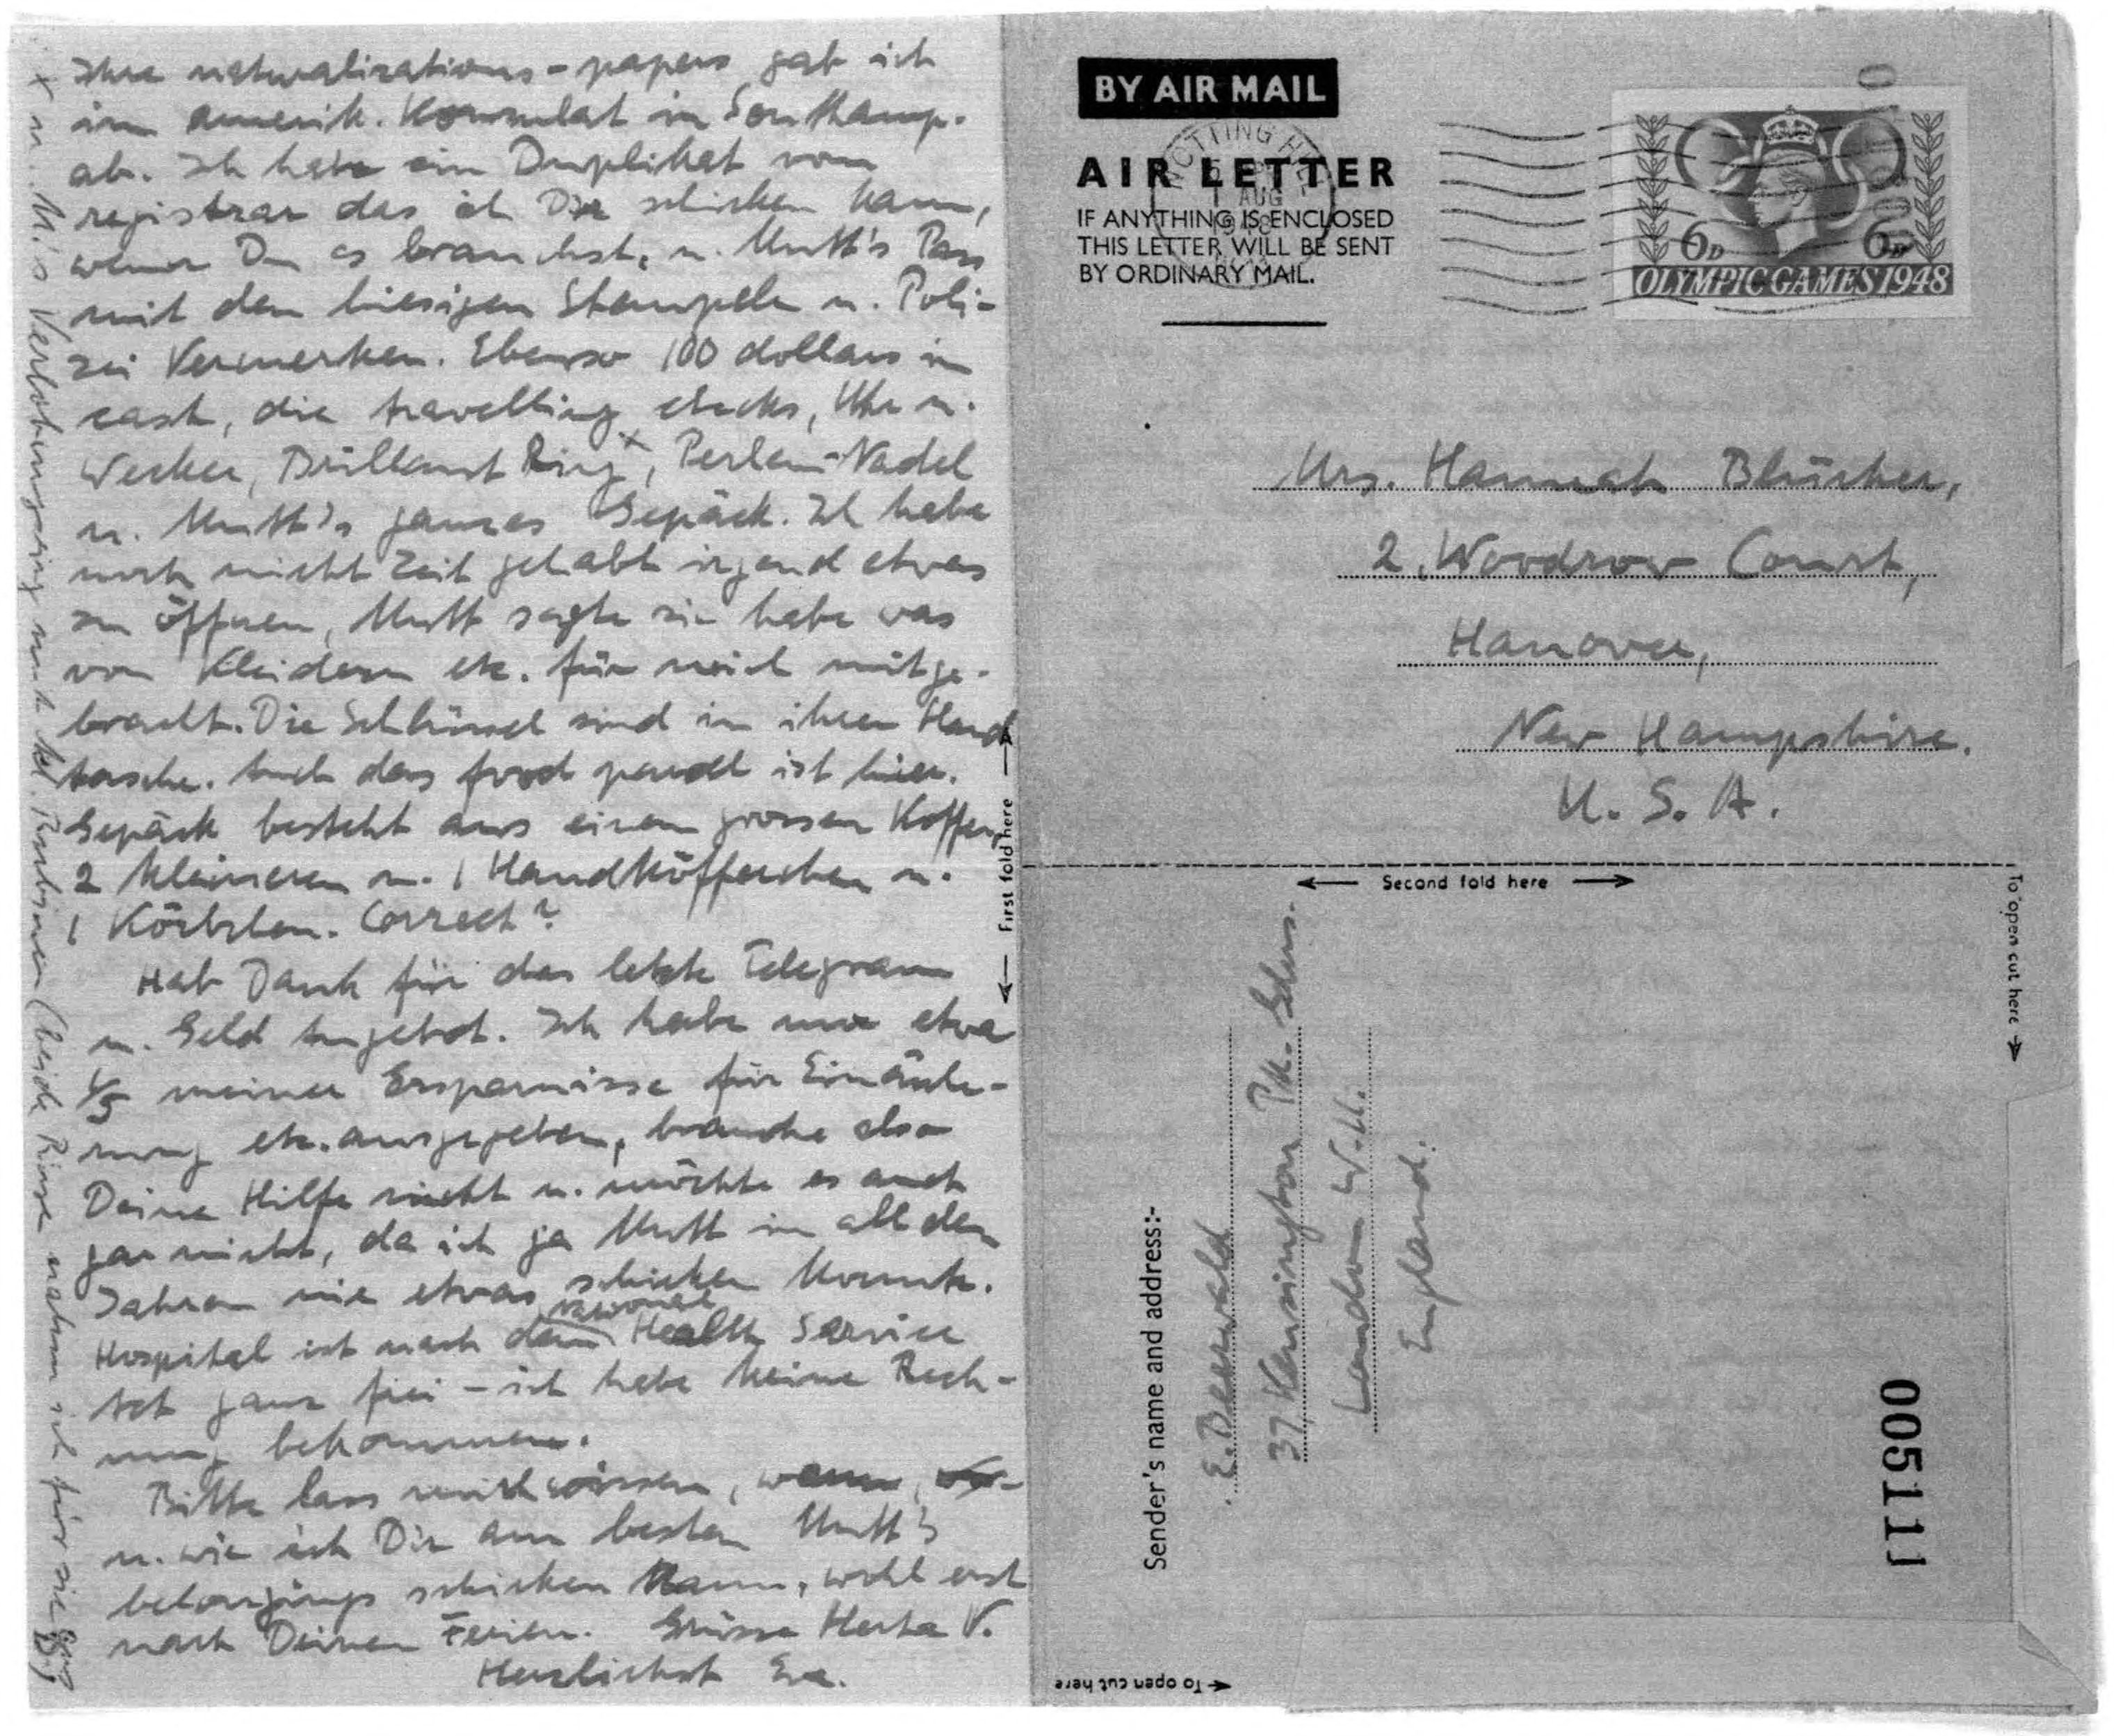 Ihre naturalizations-papers gab ich
im amerik. Konsulat in Southamp.
ab. Ich habe ein Duplikat vom
registrar das ich Dir schicken kann,
wenn Du es brauchst, u. Mutt's Pass
mit den hiesigen Stempeln u. Poli-
zei Vermerken. Ebenso 100 dollars in
cash, die travelling checks, Uhr u.
Wecker, Brillant Ring x, Perlen-Nadel
u. Mutt's ganzes Gepäck. Ich habe
noch nicht Zeit gehabt irgend etwas
zu öffnen, Mutt sagte sie habe was
von Kleidern etc. für mich mitge-
bracht. Die Schlüssel sind in ihrer Hand
tasche. Auch das food parcel ist hier.
Gepäck besteht aus einem grossen Koffer,
2 kleineren u. 1 Handköfferchen u.
1 Körbchen. Correct?
Hab Dank für das letzte Telegram
u. Geld Angebot. Ich habe nur etwa
1/5 meiner Ersparnisse für Einäsche-
rung etc. ausgegeben, brauche also
Deine Hilfe nicht u. möchte es auch
gar nicht, da ich ja Mutt in all den
Jahren nie etwas schicken konnte.
Hospital ist nach dem national Health Service
Act ganz frei – ich habe keine Rech-
nung bekommen.
Bitte lass mich wissen, wann,
u. wie ich Dir am besten Mutt's
belongings schicken kann, wohl erst
nach Deinen Ferien. Grüsse Herta V.
Herzlichst Eva.
x u. M.'s Verlobungsring mit kl. Rubinen (beide Ringe nahm ich für sie
BY AIR MAIL
AIR LETTER
IF ANYTHING IS ENCLOSED
THIS LETTER WILL BE SENT
BY ORDINARY MAIL.
NOTTING HILL
AUG
1948
6D 6D
OLYMPIC GAMES 1948
Mrs. Hannah Blücher,
2, Woodrow Court,
Hanover,
New Hampshire.
U. S. A.
← First fold here →
← Second fold here →
To open cut here →
Sender's name and address:-
E. Beerwald
37, Kensington Pk. Gdns.
London W. 11.
England.
005111
← To open cut here